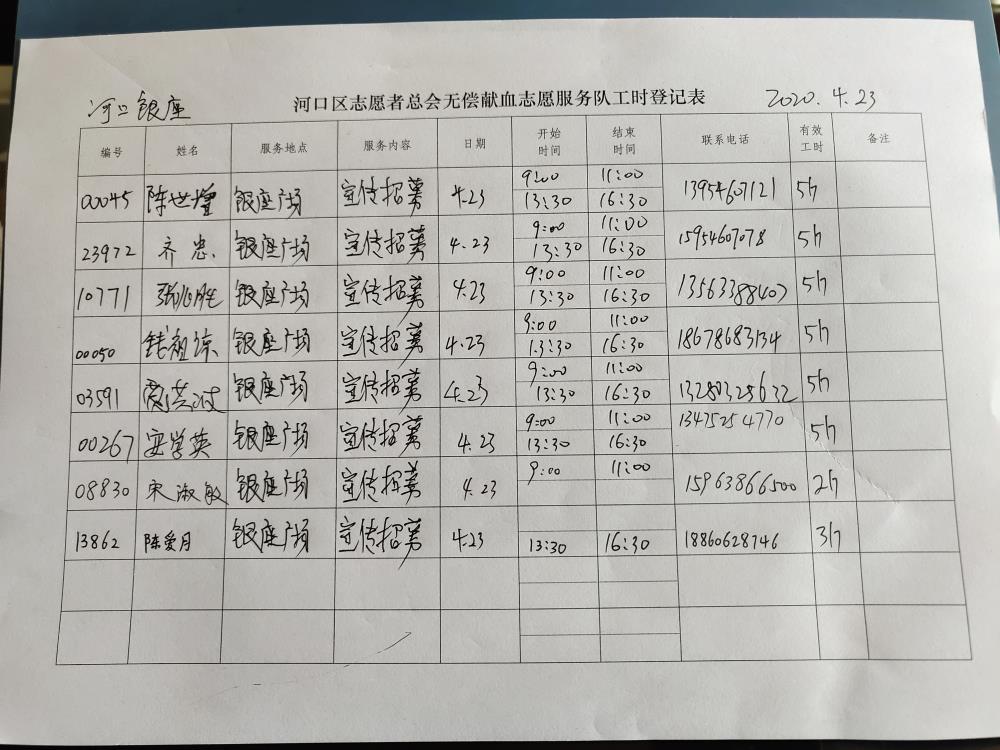 河口银座 河口区志愿者总会无偿献血志愿服务队工时登记表 2020.4.23
编号 姓名 服务地点 服务内容 日期 开始时间 结束时间 联系电话 有效工时 备注
00045 陈世增 银座广场 宣传招募 4.23 9:00 11:00 13954607121 5h
13:30 16:30
23972 齐忠 银座广场 宣传招募 4.23 9:00 11:00 15954607078 5h
13:30 16:30
10771 张 胜 银座广场 宣传招募 4.23 9:00 11:00 13563388407 5h
13:30 16:30
00050 钱祖 银座广场 宣传招募 4.23 9:00 11:00 18678683134 5h
13:30 16:30
03591 洪波 银座广场 宣传招募 4.23 9:00 11:00 13280325632 5h
13:30 16:30
00267 安学英 银座广场 宣传招募 4.23 9:00 11:00 13475254770 5h
13:30 16:30
08830 宋淑敏 银座广场 宣传招募 4.23 9:00 11:00 15963866500 2h
13862 陈爱月 银座广场 宣传招募 4.23 13:30 16:30 18860628746 3h